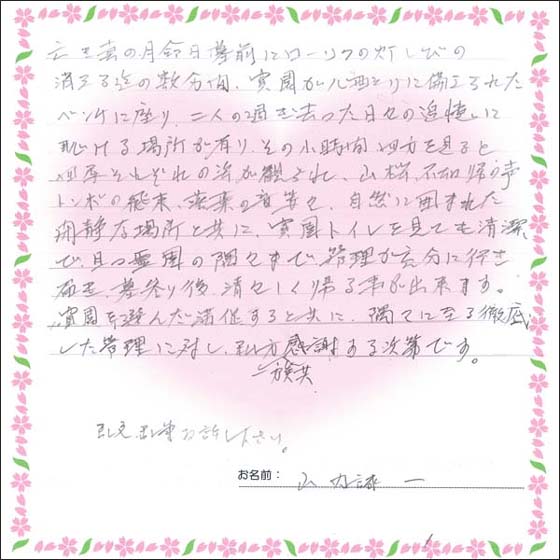 亡き妻の月命日墓前にローソクの灯しびの
消える迄の数分間、貴園が心西とりに備えられた
ベンチに座り、二人の過ぎ去った日々の追憶に
耽ける場所が有り、その小時間四方を見ると
四季それぞれの姿が観られ、山桜、不如帰の声
トンボの飛来、落葉の音等々、自然に囲まれた
閑静な場所と共に、貴園トイレを見ても清潔
で、且つ霊園の隅々まで管理が充分に行き
届き、墓参り後、清々しく帰る事が出来ます。
貴園を選んだ満足すると共に、隅々に至る徹底
した管理に対し、私方感謝する次第です。
一族共
乱文、乱筆お許し下さい。
お名前：
山 内 謙 一